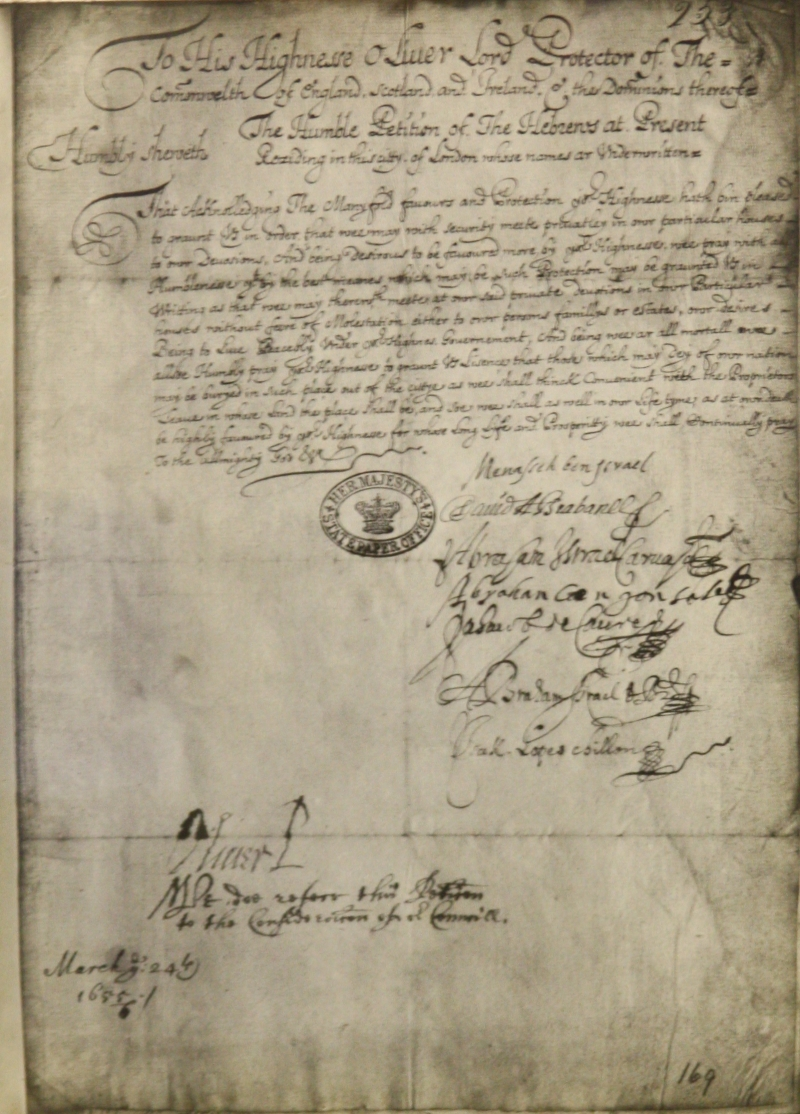 233
To His Highnesse Oliver Lord Protector of The =
Comonwelth of England, Scotland, and Ireland, & the Dominions thereof =
The Humble Petition of The Hebrews at Present
Humbly Sheweth
Reziding in this city of London whose names ar Underwritten =
That Acknolledging The Manyfold favours and Protection yor Highnesse hath bin pleased
to graunt Us in order that wee may with security meete privatley in owr particular houses
to owr Devosions, And being desirous to be favoured more by yor Highnesse, wee pray with
Humblenesse by the best meanes which may be Such Protection may be graunted Us in
Writing as that wee may therewth meete at owr said private devotions in owr Particular
houses without feere of Molestation either to owr persons famillys or estates, owr desires
Being to Live Peacebly Under yor Highnes Governement, And being wee ar all mortall wee
allsoe Humbly pray yor Highnesse to graunt Us Lisence that those which may dey of owr nation
may be buryed in such place out of the cittye as wee shall thinck Convenient with the Proprietors
Leave in whose Land the place shall be, and soe wee shall as well in owr Life tyme, as at owr death
be highly favoured by yor Highnesse for whose Long Life and Prosperity wee shall Continually pray
To the allmighty God
Menasseh ben Israel
HER MAJESTY'S STATE PAPER OFFICE
David Abrabanell
Abraham Israel Carvajal
Abraham Coen Gonsales
Jahacob de Caceres
Abraham Israel de Brito
Isak Lopes Chillon
Oliver P
Wee doe referr this Peticon
to the Consideracon of ye Councill.
March ye: 24th
1655/6
169